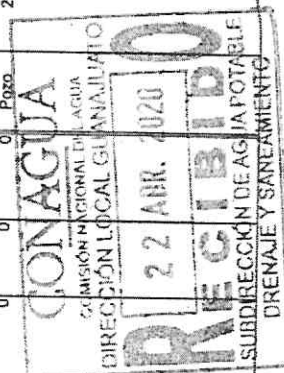 0 0 0 Pozo 2
CONAGUA
COMISIÓN NACIONAL DEL AGUA
DIRECCIÓN LOCAL GUANAJUATO
22 ABR. 2020
RECIBIDO
SUBDIRECCIÓN DE AGUA POTABLE
DRENAJE Y SANEAMIENTO